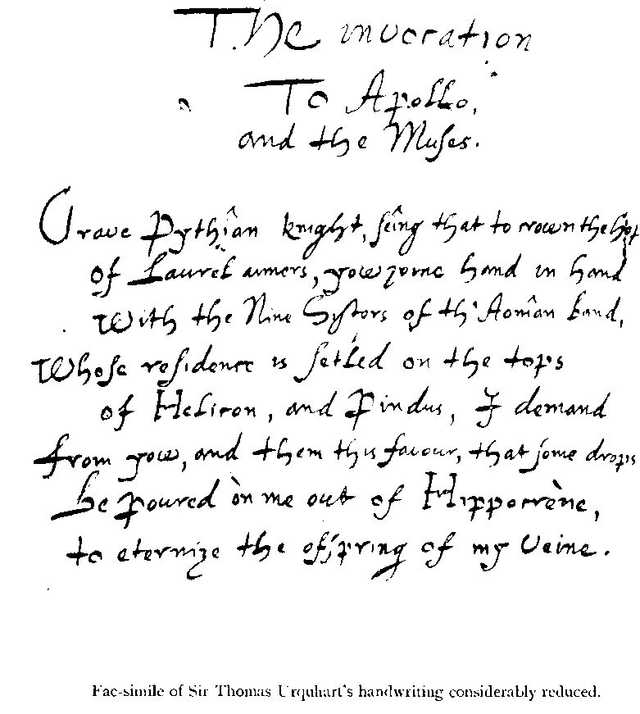 The invocation
To Apollo,
and the Muses.
Brave Pythian knight, seing that to crown the hops
of Laurel aimers, yow joine hand in hand
With the Nine Systors of th' Aonian band,
Whose residence is setled on the tops
of Helicon, and Pindus, I demand
from yow, and them this favour, that some drops
be poured on me out of Hippocrène,
to eternize the ofspring of my Veine.
Fac-simile of Sir Thomas Urquhart's handwriting considerably reduced.